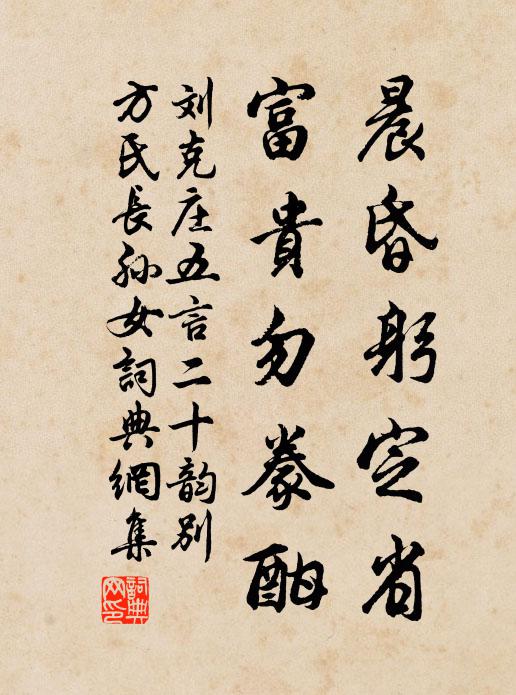 晨昏躬定省
富貴勿豢酣
刘克庄五言二十韵别
方氏長孙女詞典網集
詞典网印